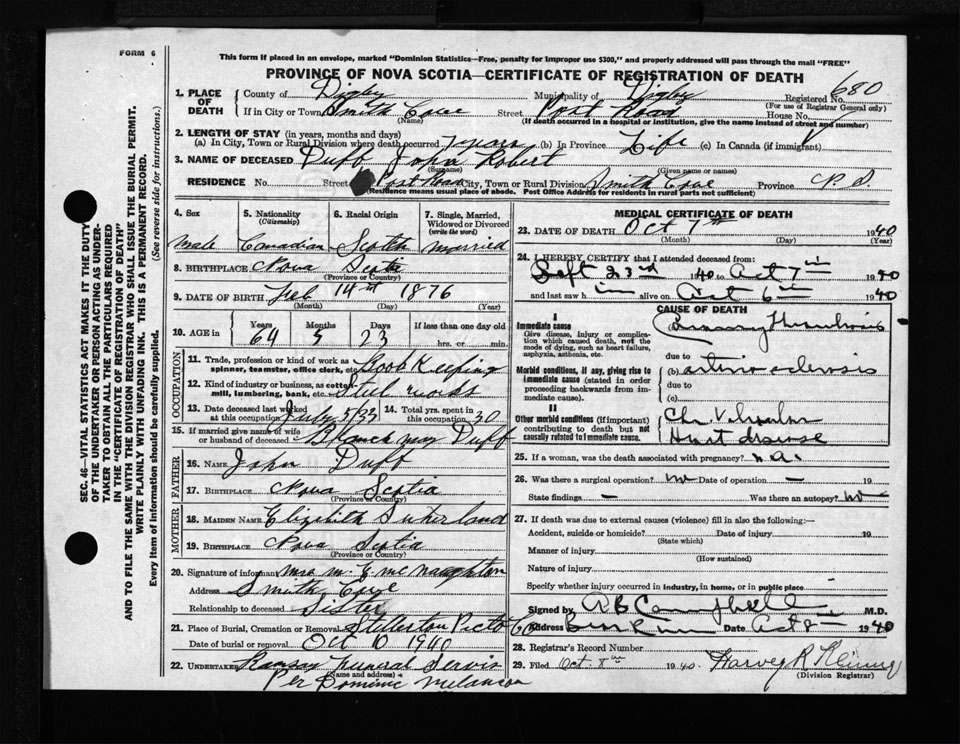 FORM 6
This form if placed in an envelope, marked "Dominion Statistics—Free, penalty for improper use $300," and properly addressed will pass through the mail "FREE"
PROVINCE OF NOVA SCOTIA—CERTIFICATE OF REGISTRATION OF DEATH
680
1. PLACE OF DEATH
County of Digby Municipality of Digby Registered No.
(For use of Registrar General only)
If in City or Town Smith Cove Street Post Road House No.
(Name) (If death occurred in a hospital or institution, give the name instead of street and number)
2. LENGTH OF STAY (in years, months and days)
(a) In City, Town or Rural Division where death occurred 7 years (b) In Province Life (c) In Canada (if immigrant)
3. NAME OF DECEASED Duff John Robert
(Surname) (Given name or names)
RESIDENCE No. Street Post Road City, Town or Rural Division Smith Cove Province N. S.
(Residence means usual place of abode. Post Office Address for residents in rural parts not sufficient)
4. Sex 5. Nationality (Citizenship) 6. Racial Origin 7. Single, Married, Widowed or Divorced (write the word)
Male Canadian Scotch Married
8. BIRTHPLACE Nova Scotia
(Province or Country)
9. DATE OF BIRTH Feb 14th 1876
(Month) (Day) (Year)
10. AGE in Years Months Days If less than one day old
64 5 23 hrs. or min.
OCCUPATION
11. Trade, profession or kind of work as spinner, teamster, office clerk, etc. Book Keeping
12. Kind of industry or business, as cotton mill, lumbering, bank, etc. Steel works
13. Date deceased last worked at this occupation July 5/33 14. Total yrs. spent in this occupation 30
15. If married give name of wife or husband of deceased Blanch May Duff
FATHER
16. NAME John Duff
17. BIRTHPLACE Nova Scotia
(Province or Country)
MOTHER
18. MAIDEN NAME Elizibith Sutherland
19. BIRTHPLACE Nova Scotia
(Province or Country)
20. Signature of informant Mrs M. E Mc Naughton
Address Smith Cove
Relationship to deceased Sister
21. Place of Burial, Cremation or Removal Stellerton Pictou Co
Date of burial or removal Oct 10 1940
22. UNDERTAKER Ramsay Funeral Servis
(Name and address)
Per Dominic Melanson
MEDICAL CERTIFICATE OF DEATH
23. DATE OF DEATH Oct 7th 1940
(Month) (Day) (Year)
24. I HEREBY CERTIFY that I attended deceased from:
Sept 23rd 1940 to Oct 7th 1940
and last saw him alive on Oct 6th 1940
CAUSE OF DEATH
I
Immediate cause
Give disease, injury or complication which caused death, not the mode of dying, such as heart failure, asphyxia, asthenia, etc.
Thrombosis
due to
Morbid conditions, if any, giving rise to immediate cause (stated in order proceeding backwards from immediate cause).
(b)
due to
(c)
II
Other morbid conditions (if important) contributing to death but not causally related to immediate cause
Ch. Valvular
Heart disease
25. If a woman, was the death associated with pregnancy?
26. Was there a surgical operation? no Date of operation —
State findings — Was there an autopsy? no
27. If death was due to external causes (violence) fill in also the following:—
Accident, suicide or homicide? Date of injury 19
(State which)
Manner of injury
(How sustained)
Nature of injury
Specify whether injury occurred in industry, in home, or in public place
Signed by Campbell M.D.
Address Bear River Date Oct 8th 1940
28. Registrar's Record Number
29. Filed Oct 8th 1940. Harvey R
(Division Registrar)
SEC. 46—VITAL STATISTICS ACT MAKES IT THE DUTY
OF THE UNDERTAKER OR PERSON ACTING AS UNDER-
TAKER TO OBTAIN ALL THE PARTICULARS REQUIRED
IN THE "CERTIFICATE OF REGISTRATION OF DEATH"
AND TO FILE THE SAME WITH THE DIVISION REGISTRAR WHO SHALL ISSUE THE BURIAL PERMIT.
WRITE PLAINLY WITH UNFADING INK. THIS IS A PERMANENT RECORD.
Every item of information should be carefully supplied. (See reverse side for instructions.)